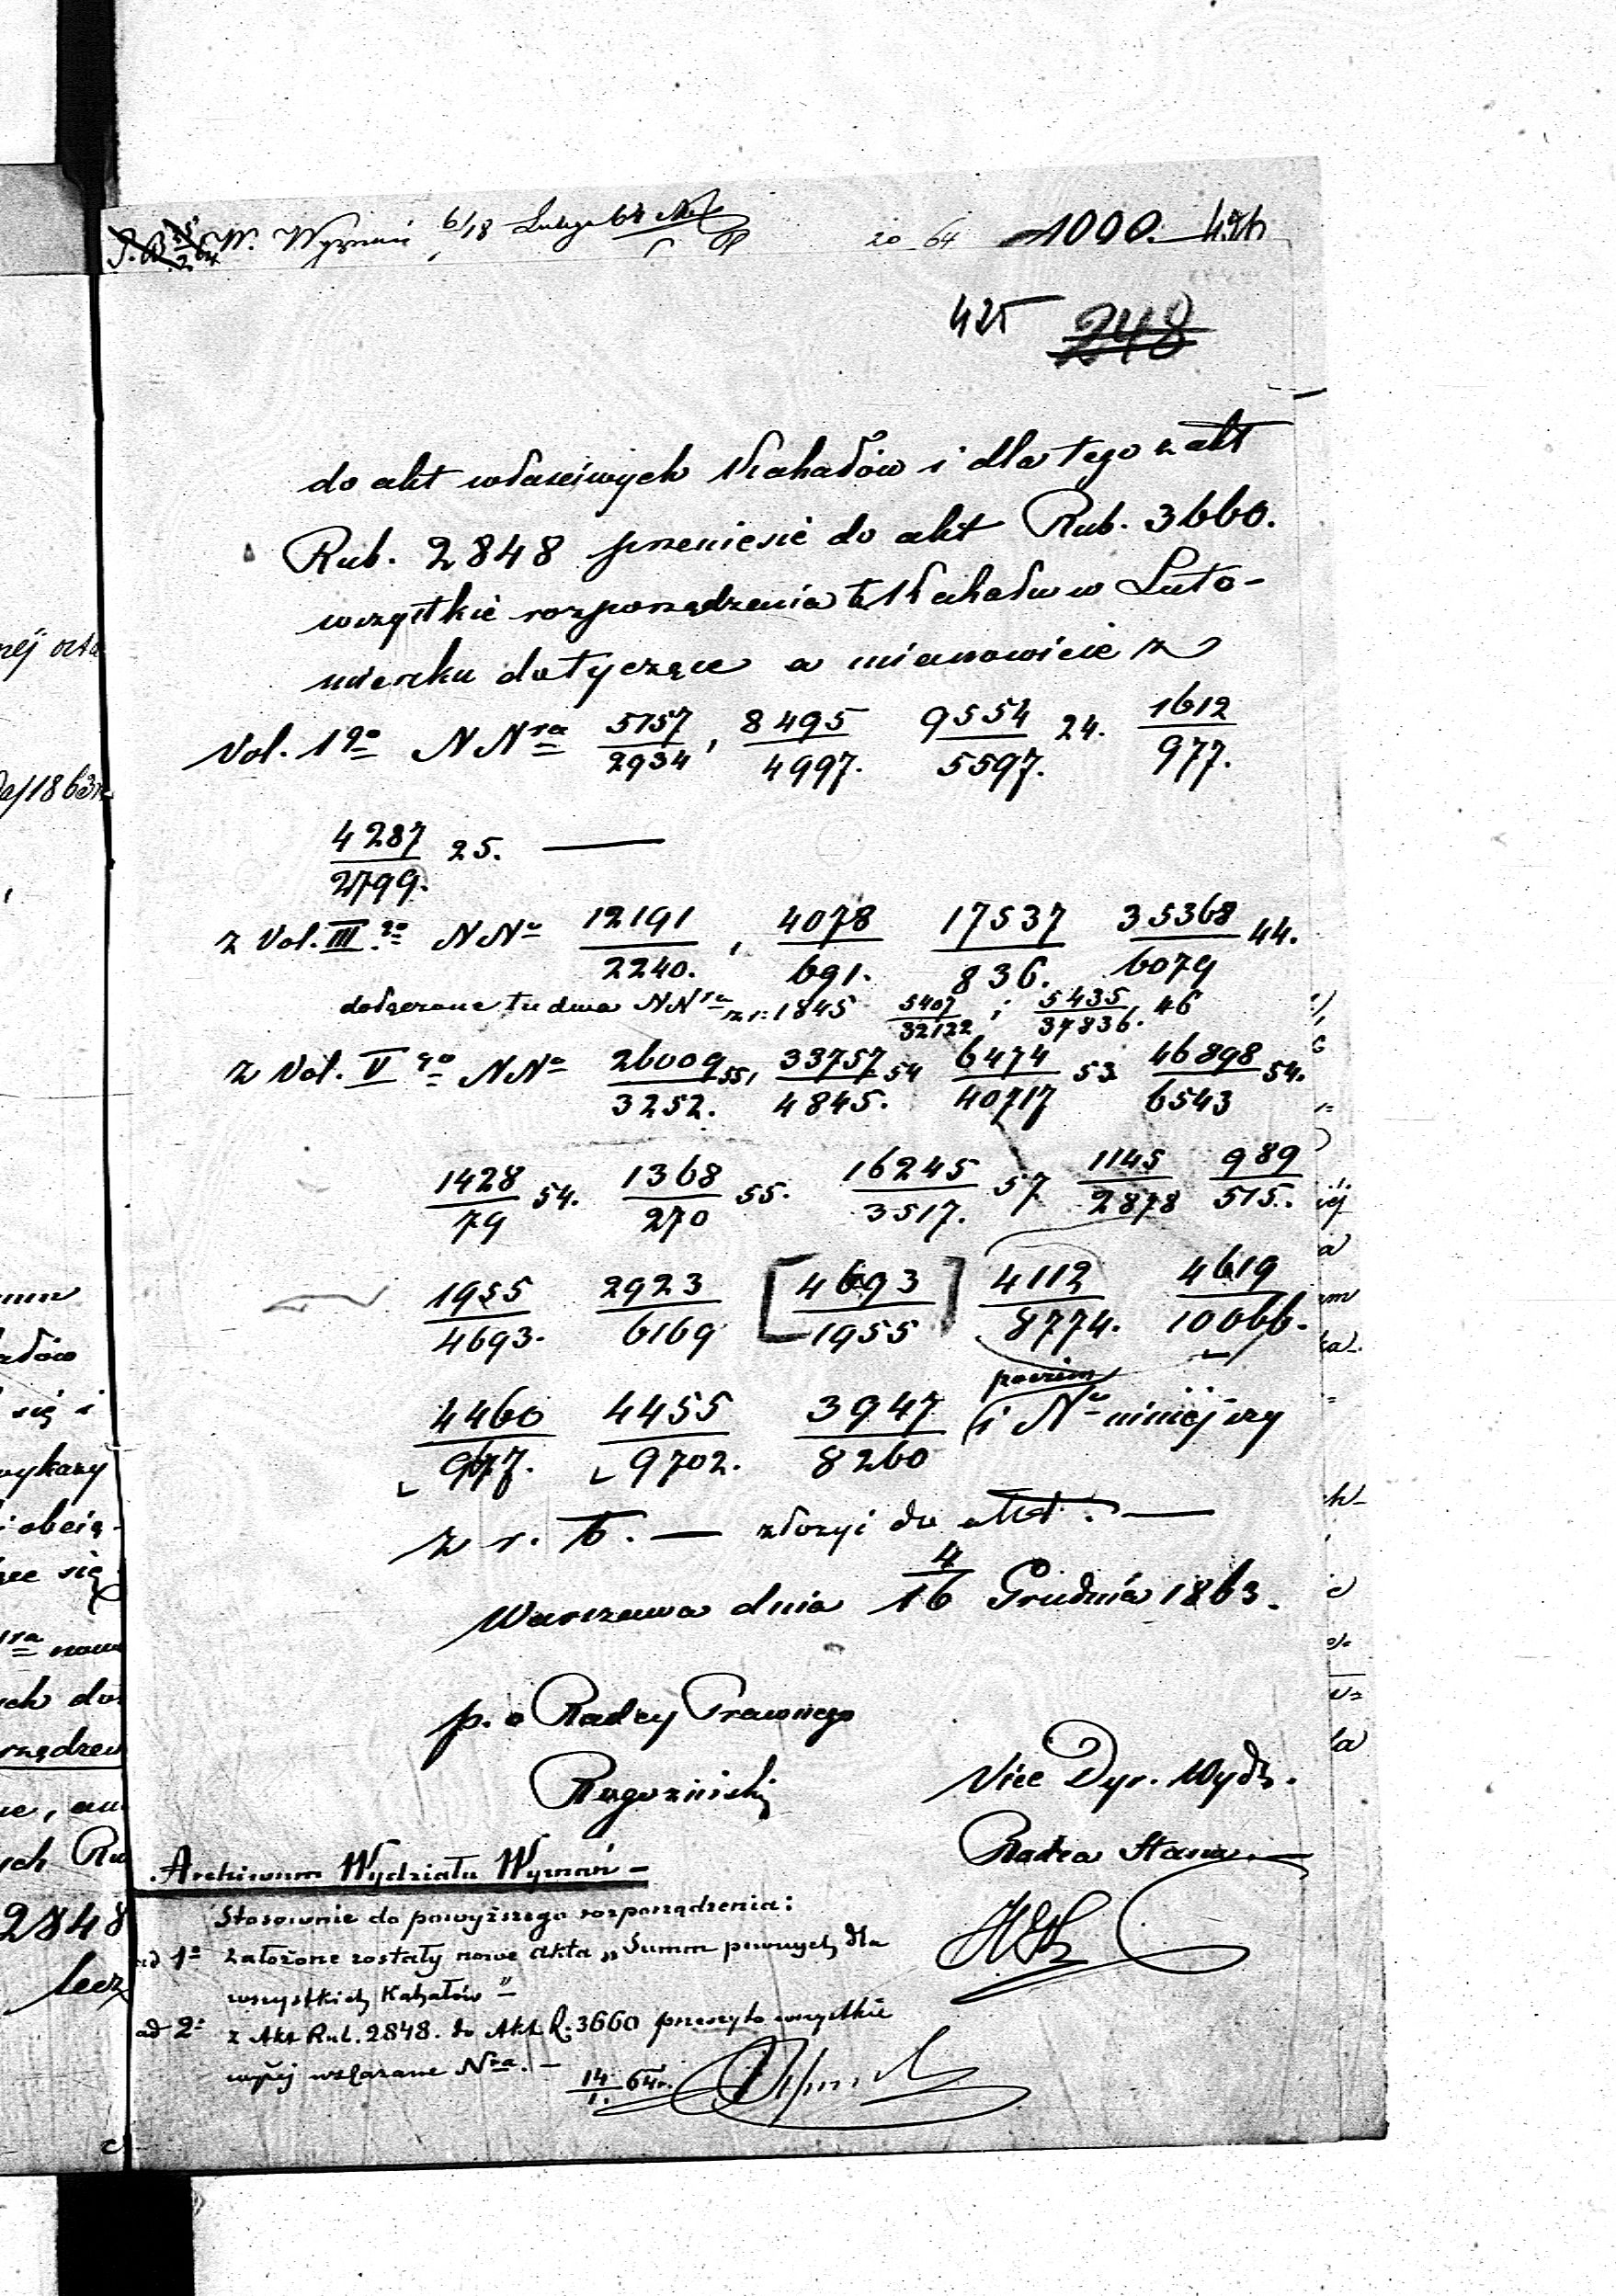 W. Wyznań 6/18 Lutego 64
20 64 1000. 426
425 248
do akt właściwych Kahałów i dla tego z akt
Rub. 2848 przenieść do akt Rub. 3660.
wszystkie rozporządzenia Kahału w Luto-
miersku dotyczące a mianowicie z
Vol. 1go NNra 5157/2934, 8495/4997. 9554/5597. 24. 1612/977.
4287/2799. 25. —
z Vol. III go NNo 12191/2240., 4078/691. 17537/836. 35368/6079 44.
dołączone tu dwa NNra z r. 1845 5407/32122 i 5435/37836. 46
z Vol. V go NNo 26009/3252. 55, 33757/4845. 54 6474/40717 53 46898/6543 54.
1428/79 54. 1368/270 55. 16245/3517. 57 1145/2878 989/515.
1955/4693. 2923/6169 [4693/1955] 4112/8774. 4619/10666.
poczem
4460/977. 4455/9702. 3947/8260 i Nr niniejszy
z r. b. — złożyć do akt. —
Warszawa dnia 4/16 Grudnia 1863.
p. o Radcy Prawnego
Rogoziński
Vice Dyr. Wydz.
Radca Stanu
Archiwum Wydziału Wyznań —
Stosownie do powyższego rozporządzenia:
ad 1o Założone zostały nowe akta „Summ pewnych dla
wszystkich Kahałów" —
ad 2o z Akt Rub. 2848. do Akt R. 3660 przeszyto wszystkie
wyżej wskazane Nra. —
14/1. 64r.